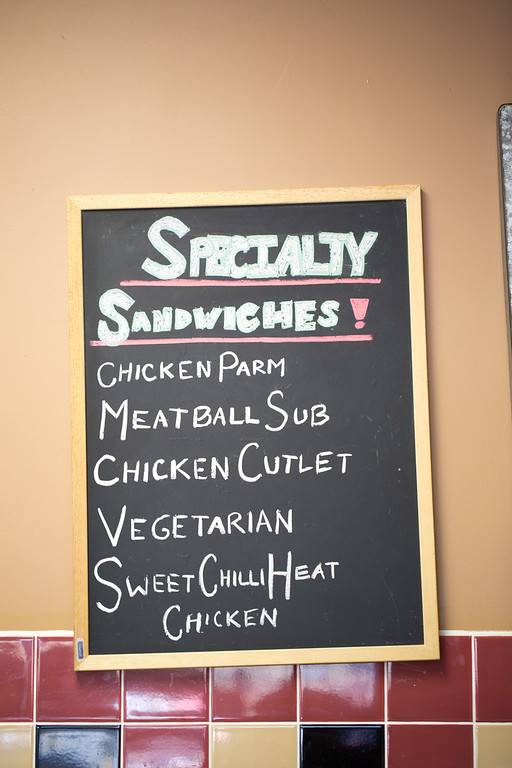 SPECIALTY
SANDWICHES!
CHICKEN PARM
MEATBALL SUB
CHICKEN CUTLET
VEGETARIAN
SWEET CHILLI HEAT
CHICKEN